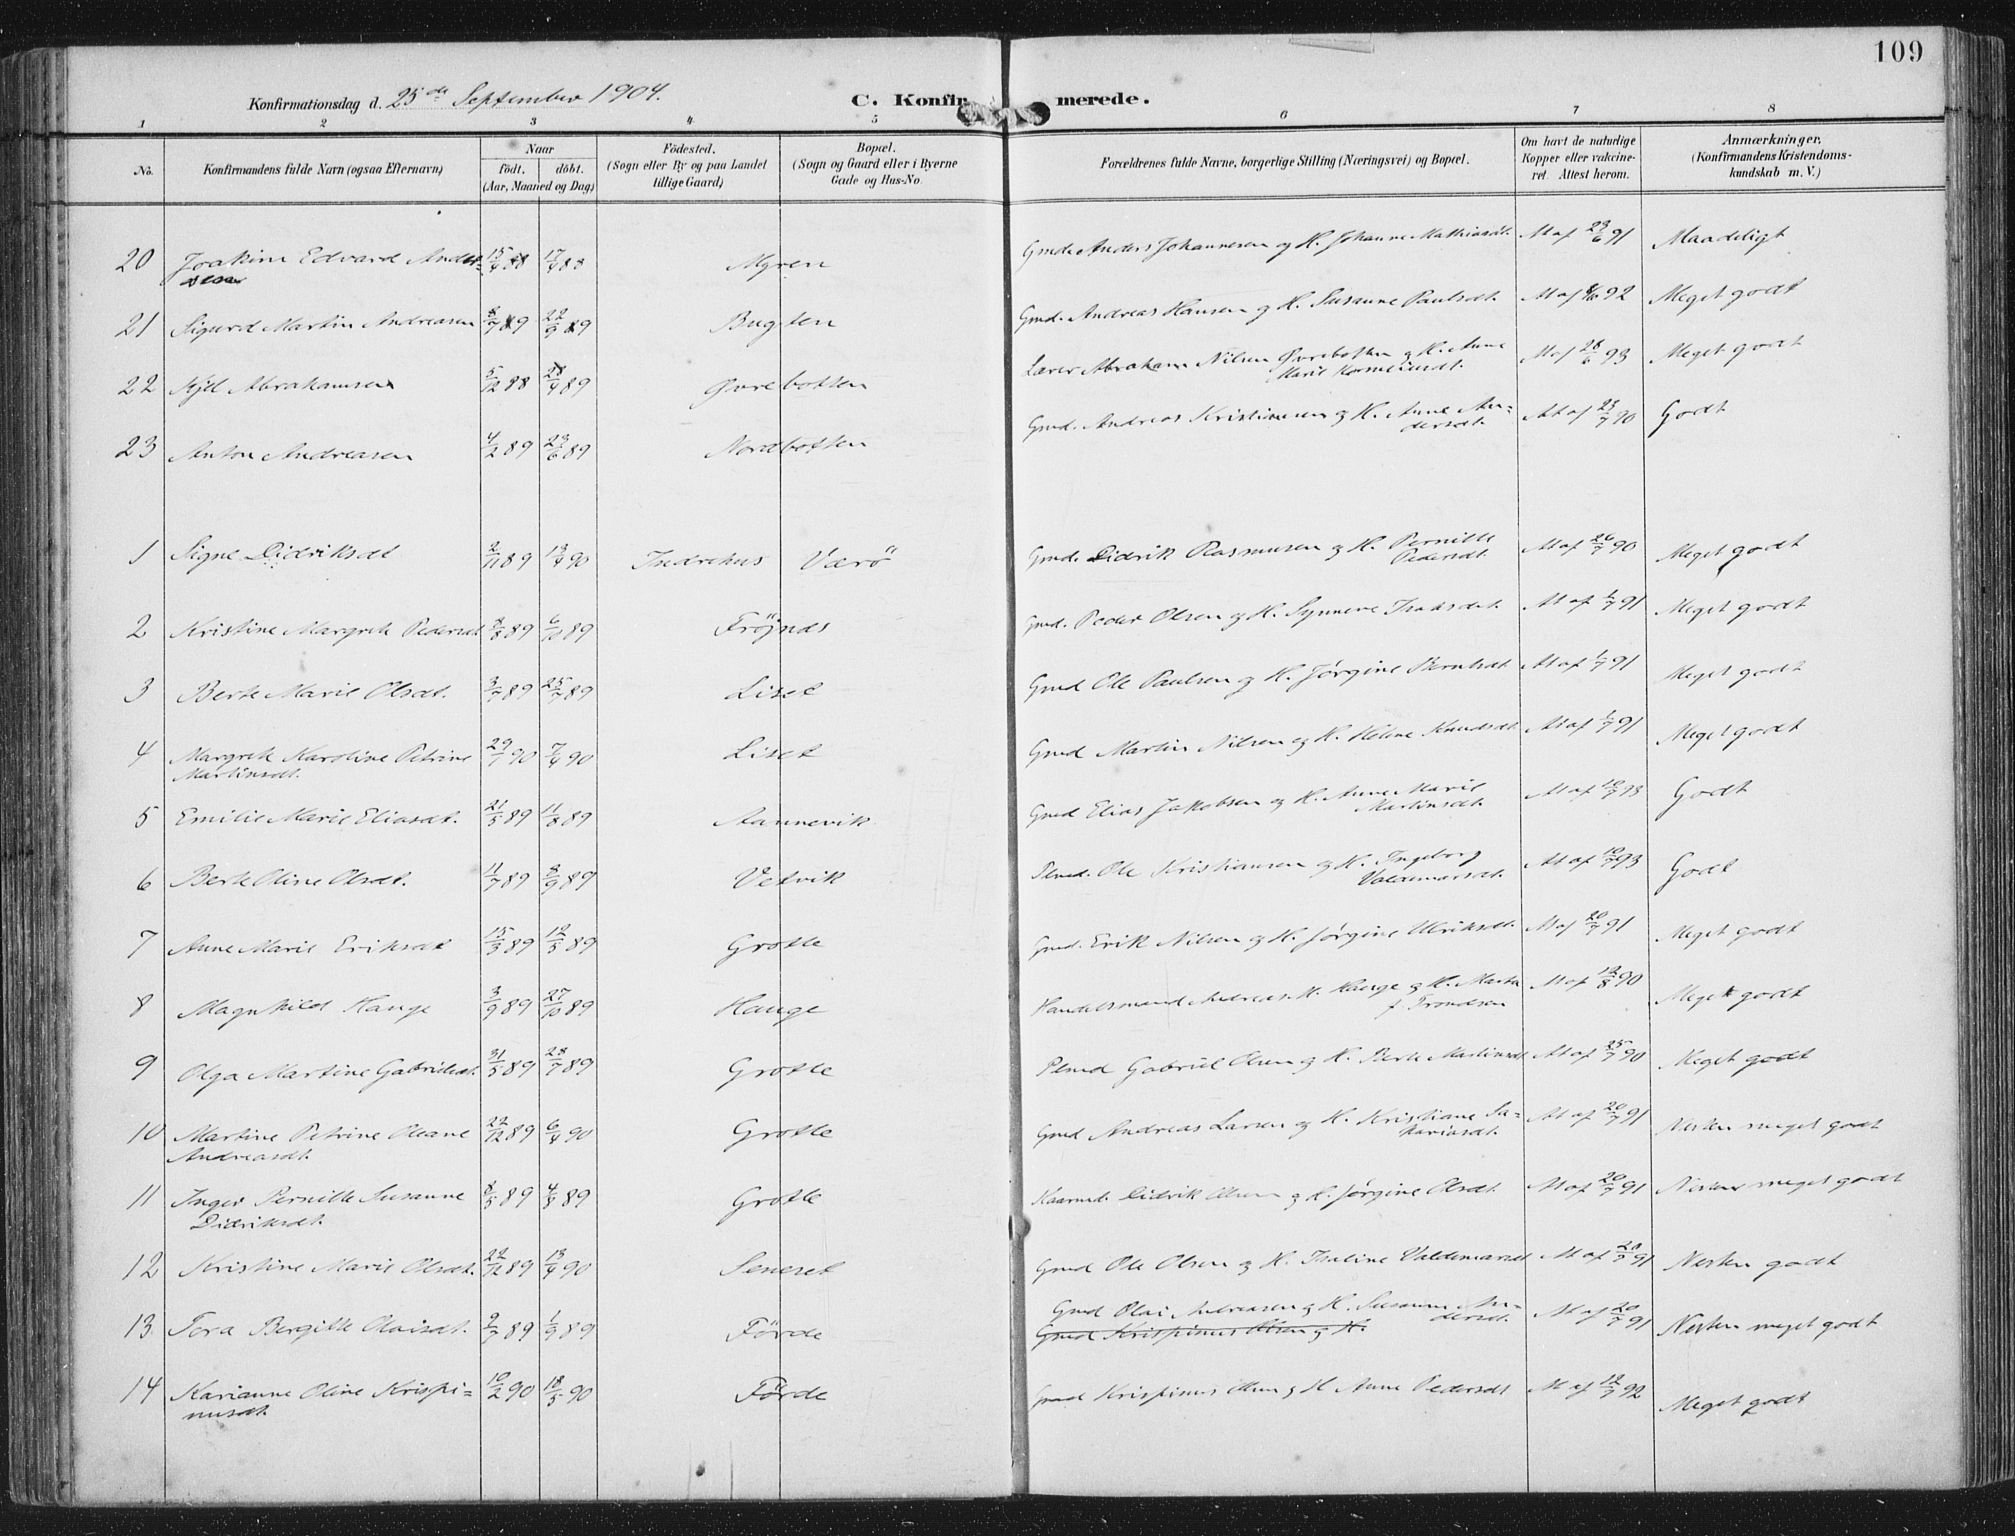 109
Konfirmationsdag d. 25de September 1904. C. Konfirmerede.
1 2 3 4 5 6 7 8
No. Konfirmandens fulde Navn (ogsaa Efternavn) Naar födt. döbt. (Aar, Maaned og Dag) Födested. (Sogn eller By og paa Landet tillige Gaard) Bopæl. (Sogn og Gaard eller i Byerne Gade og Hus-No. Forældrenes fulde Navne, borgerlige Stilling (Næringsvei) og Bopæl. Om havt de naturlige Kopper eller vakcineret. Attest herom. Anmærkninger. (Konfirmandens Kristendomskundskab m. V.)
20 Joakim Edvard Andersen 15/4 88 17/4 88 Myren Gmd. Anders Johannesen og H. Johanne Mathiasdt. At af 23/6 91 Maadeligt
21 Sigurd Martin Andreasen 8/7 89 22/9 89 Bugten Gmd. Andreas Hansen og H. Susanne Paulsdt. At af 92 Meget godt
22 Kjel Abrahamsen 5/12 88 28/4 89 Øvrebotten Lærer Abraham Nilsen Øvrebotten og H. Anne Marie At af 28/6 93 Meget godt
23 Anton Andreasen 4/2 89 23/6 89 Nordbotten Gmd. Andreas Kristiansen og H. Anne Andersdt. At af 23/7 90 Godt
1 Signe Didriksdt 2/11 89 13/4 90 Indrehus Værö Gmd. Didrik Rasmusen og H. Pernille Pedersdt. At af 26/7 90 Meget godt
2 Kristine Margrete Pedersdt 8/8 89 6/10 89 Fröjnæs Gmd. Peder Olsen og H. Synneve Isaksdt. At af 1/7 91 Meget godt
3 Berte Marie Olsdt. 3/7 89 25/7 89 Liset Gmd Ole Paulsen og H. Jørgine Berntsdt At af 1/7 91 Meget godt
4 Margrete Karoline Petrine Martinsdt. 29/1 90 7/4 90 Liset Gmd Martin Nilsen og H. Heline Knudsdt At af 1/7 91 Meget godt
5 Emilie Marie Eliasdt. 21/5 89 11/8 89 Aannevik Gmd Elias Jakobsen og H. Anne Marie Martinsdt. At af 10/7 93 Godt
6 Berte Oline Olsdt. 11/7 89 8/9 89 Vetvik Plmd. Ole Kristiansen og H. Ingeborg Valdemarsdt. At af 10/7 93 Godt
7 Anne Marie Eriksdt 15/3 89 12/5 89 Grotle Gmd. Erik Nilsen og H. Jørgine Ulriksdt. At af 20/7 91 Meget godt
8 Magnhild Hauge 3/9 89 27/10 89 Hauge Handelsmand Andreas M. Hauge og H. Marta f. Trondsen At af 12/8 90 Meget godt
9 Olga Martine Gabrielsdt. 31/5 89 28/7 89 Grotle Plmd Gabriel Olsen og H. Berte Martinsdt At af 25/7 90 Meget godt
10 Martine Petrine Oleane Andreasdt. 22/12 89 6/4 90 Grotle Gmd Andreas Larsen og H. Kristiane Sakariasdt. At af 20/7 91 Nesten meget godt
11 Inger Pernille Susanne Didriksdt. 8/5 89 4/8 89 Grotle Kaarmd. Didrik Olsen og H. Jørgine Olsdt. At af 20/7 91 Nesten meget godt
12 Kristine Marie Olsdt. 22/12 89 13/4 90 Seneset Gmd Ole Olsen og H. Isaline Valdemarsdt At af 20/7 91 Nesten godt
13 Tora Bergitte Olaisdt. 2/7 89 1/9 89 Förde Gmd Olai Andreasen og H. Susanne Andersdt. Gmd Krispinus Olsen og H. At af 20/7 91 Nesten meget godt
14 Karianne Oline Krispinusdt 10/2 90 18/5 90 Förde Gmd Krispinus Olsen og H Anne Pedersdt At af 12/7 92 Meget godt